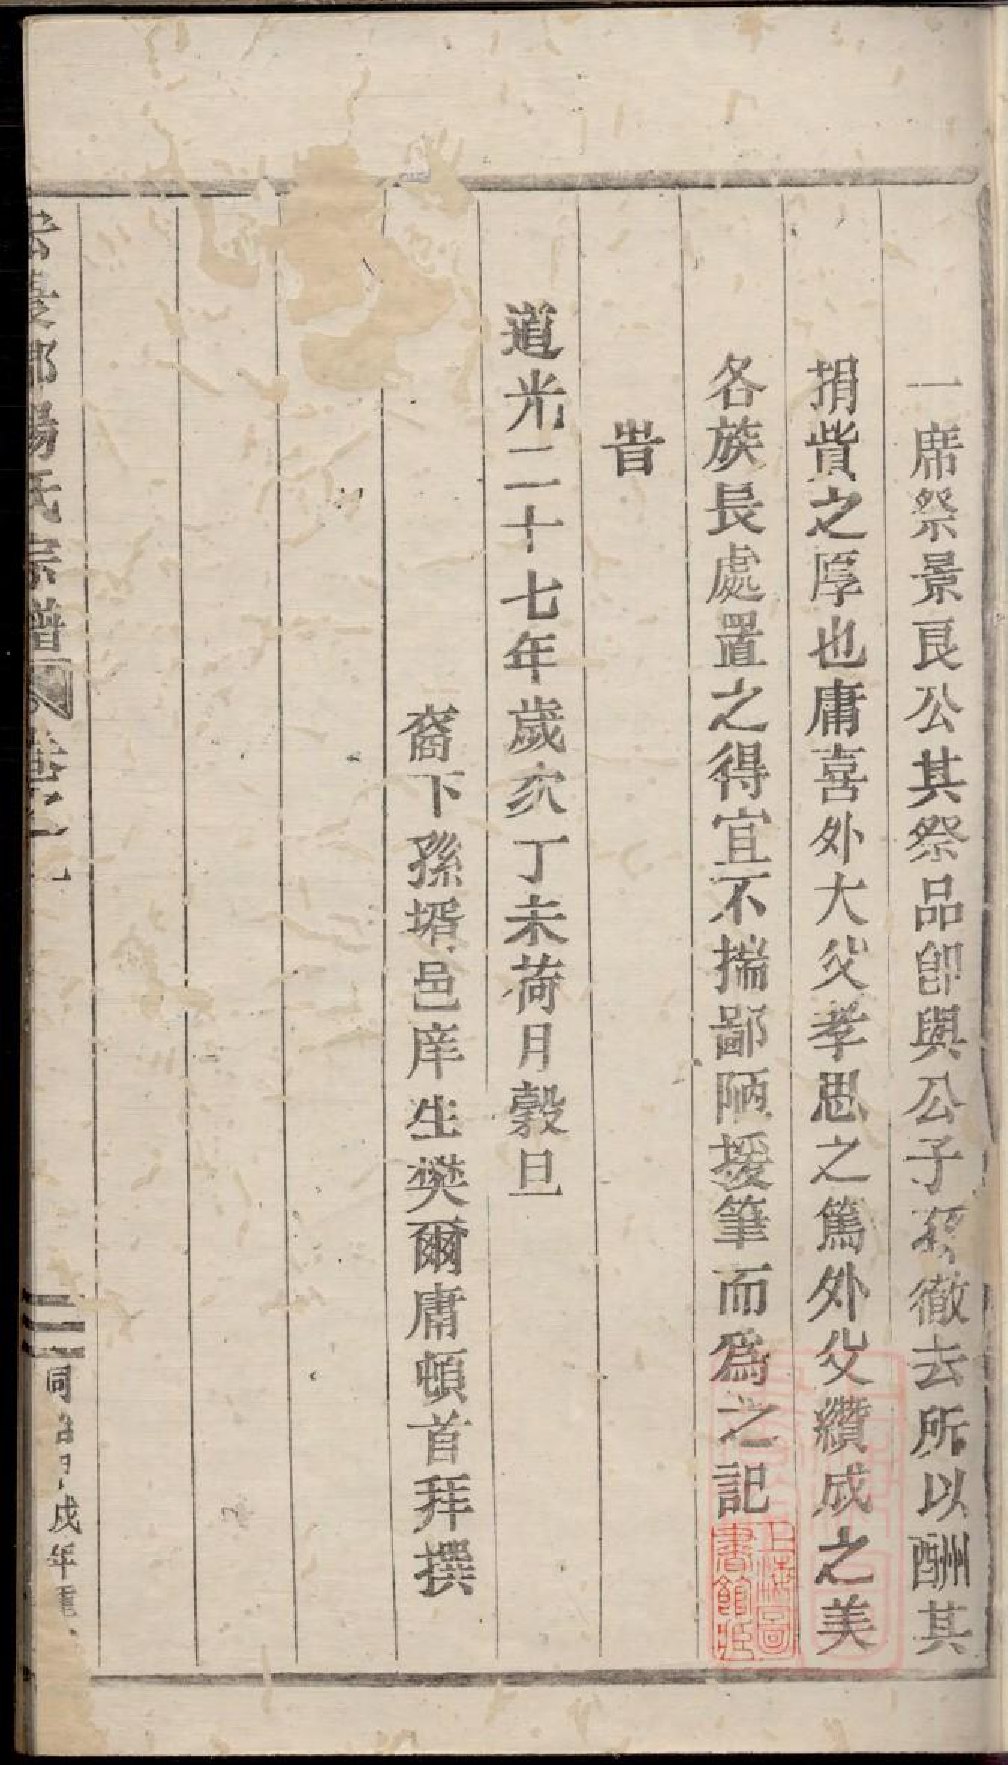 一席祭景良公其祭品卽與公子孫徹去所以酬其
捐貲之厚也庸喜外大父孝思之篤外父纘成之美
各族長處置之得宜不揣鄙陋援筆而爲之記
旹
道光二十七年歲次丁未荷月穀旦
裔下孫壻邑庠生樊爾庸頓首拜撰
楊氏宗譜
卷之一
二
同治甲戌年重
上海圖書館藏